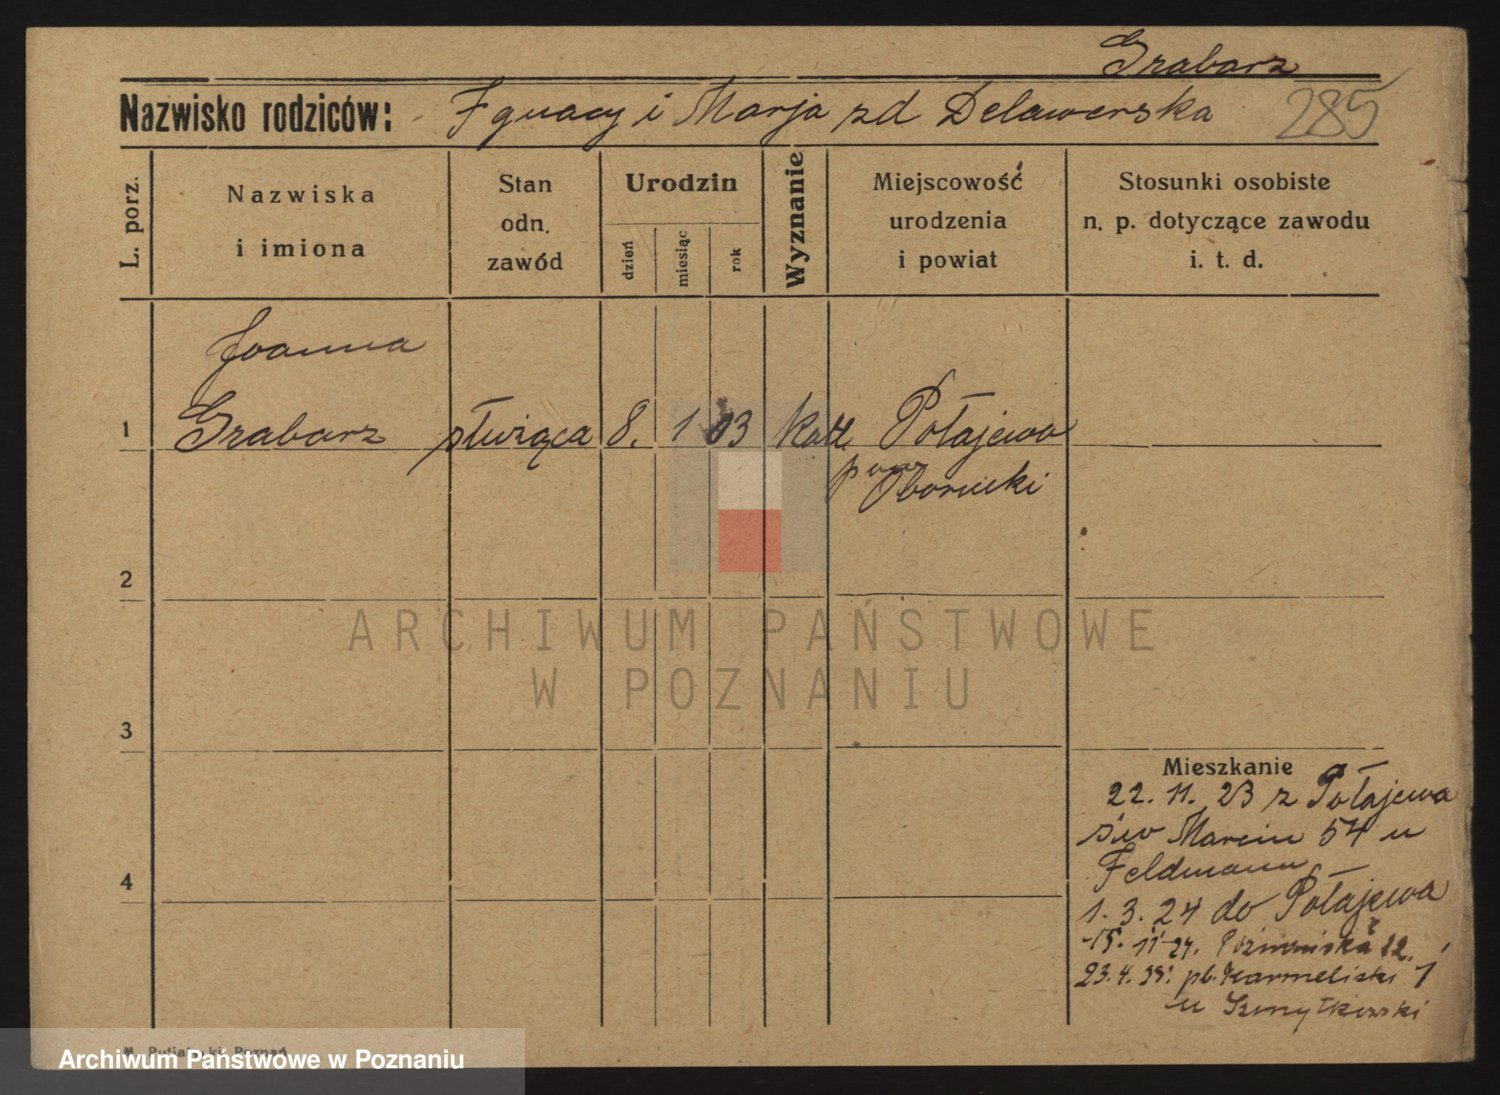 Grabarz
Nazwisko rodziców: Ignacy i Marja zd Delawerska 285
L. porz.
Nazwiska
i imiona
Stan
odn.
zawód
Urodzin
dzień
miesiąc
rok
Wyznanie
Miejscowość
urodzenia
i powiat
Stosunki osobiste
n. p. dotyczące zawodu
i. t. d.
Joanna
1 Grabarz służąca 8. 1 03 kat. Połajewo
pow Obornicki
2
ARCHIWUM PAŃSTWOWE
W POZNANIU
3
Mieszkanie
22. 11. 23 z Połajewa
św Marcin 54 u
Feldmann
4
1. 3. 24 do Połajewa
15. 11 24. Poznańska 12.
23. 4. pl. Karmelicki 1
u
Poznań
Archiwum Państwowe w Poznaniu